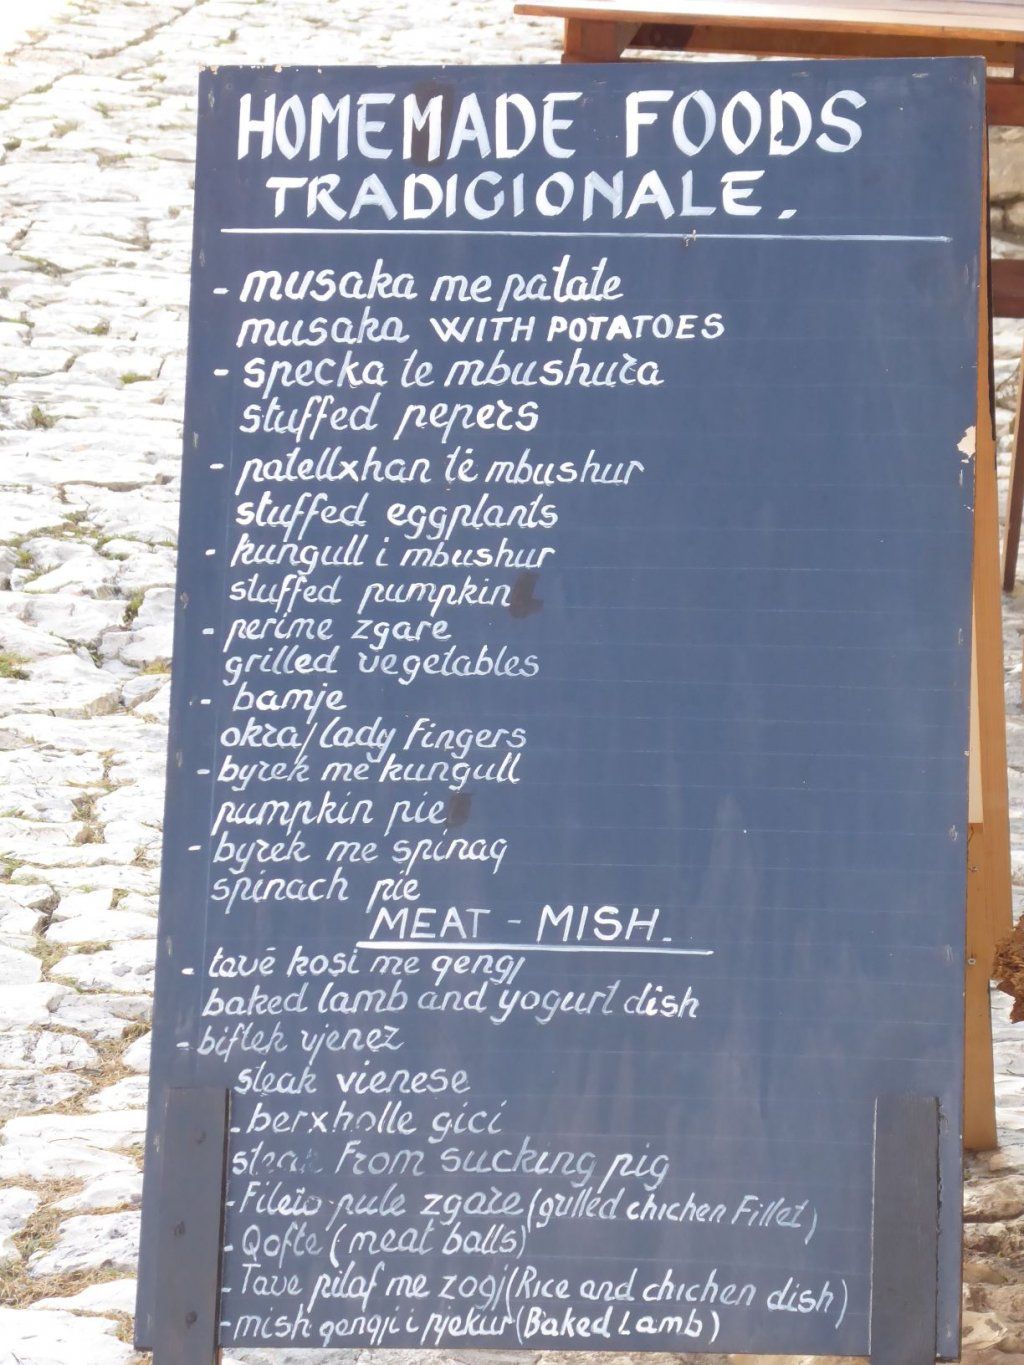 HOMEMADE FOODS
TRADICIONALE.
- musaka me patate
musaka WITH POTATOES
- specka te mbushura
stuffed pepers
- patellxhan të mbushur
stuffed eggplants
- kungull i mbushur
stuffed pumpkin
- perime zgare
grilled vegetables
- bamje
okra/lady fingers
- byrek me kungull
pumpkin pie
- byrek me spinaq
spinach pie
MEAT - MISH.
- tavë kosi me qengj
baked lamb and yogurt dish
- biftek vjenez
steak vienese
- berxholle gici
steak From sucking pig
- Fileto pule zgare (grilled chichen Fillet)
- Qofte (meat balls)
- Tave pilaf me zogj (Rice and chichen dish)
- mish qengji i pjekur (Baked Lamb)